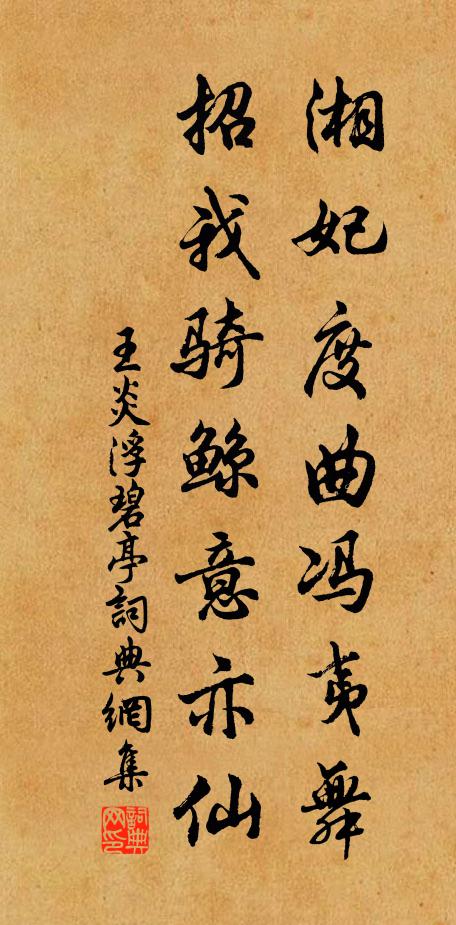 湘妃度曲冯夷舞
招我骑鲸意亦仙
王炎浮碧亭詞典網集
詞典网印